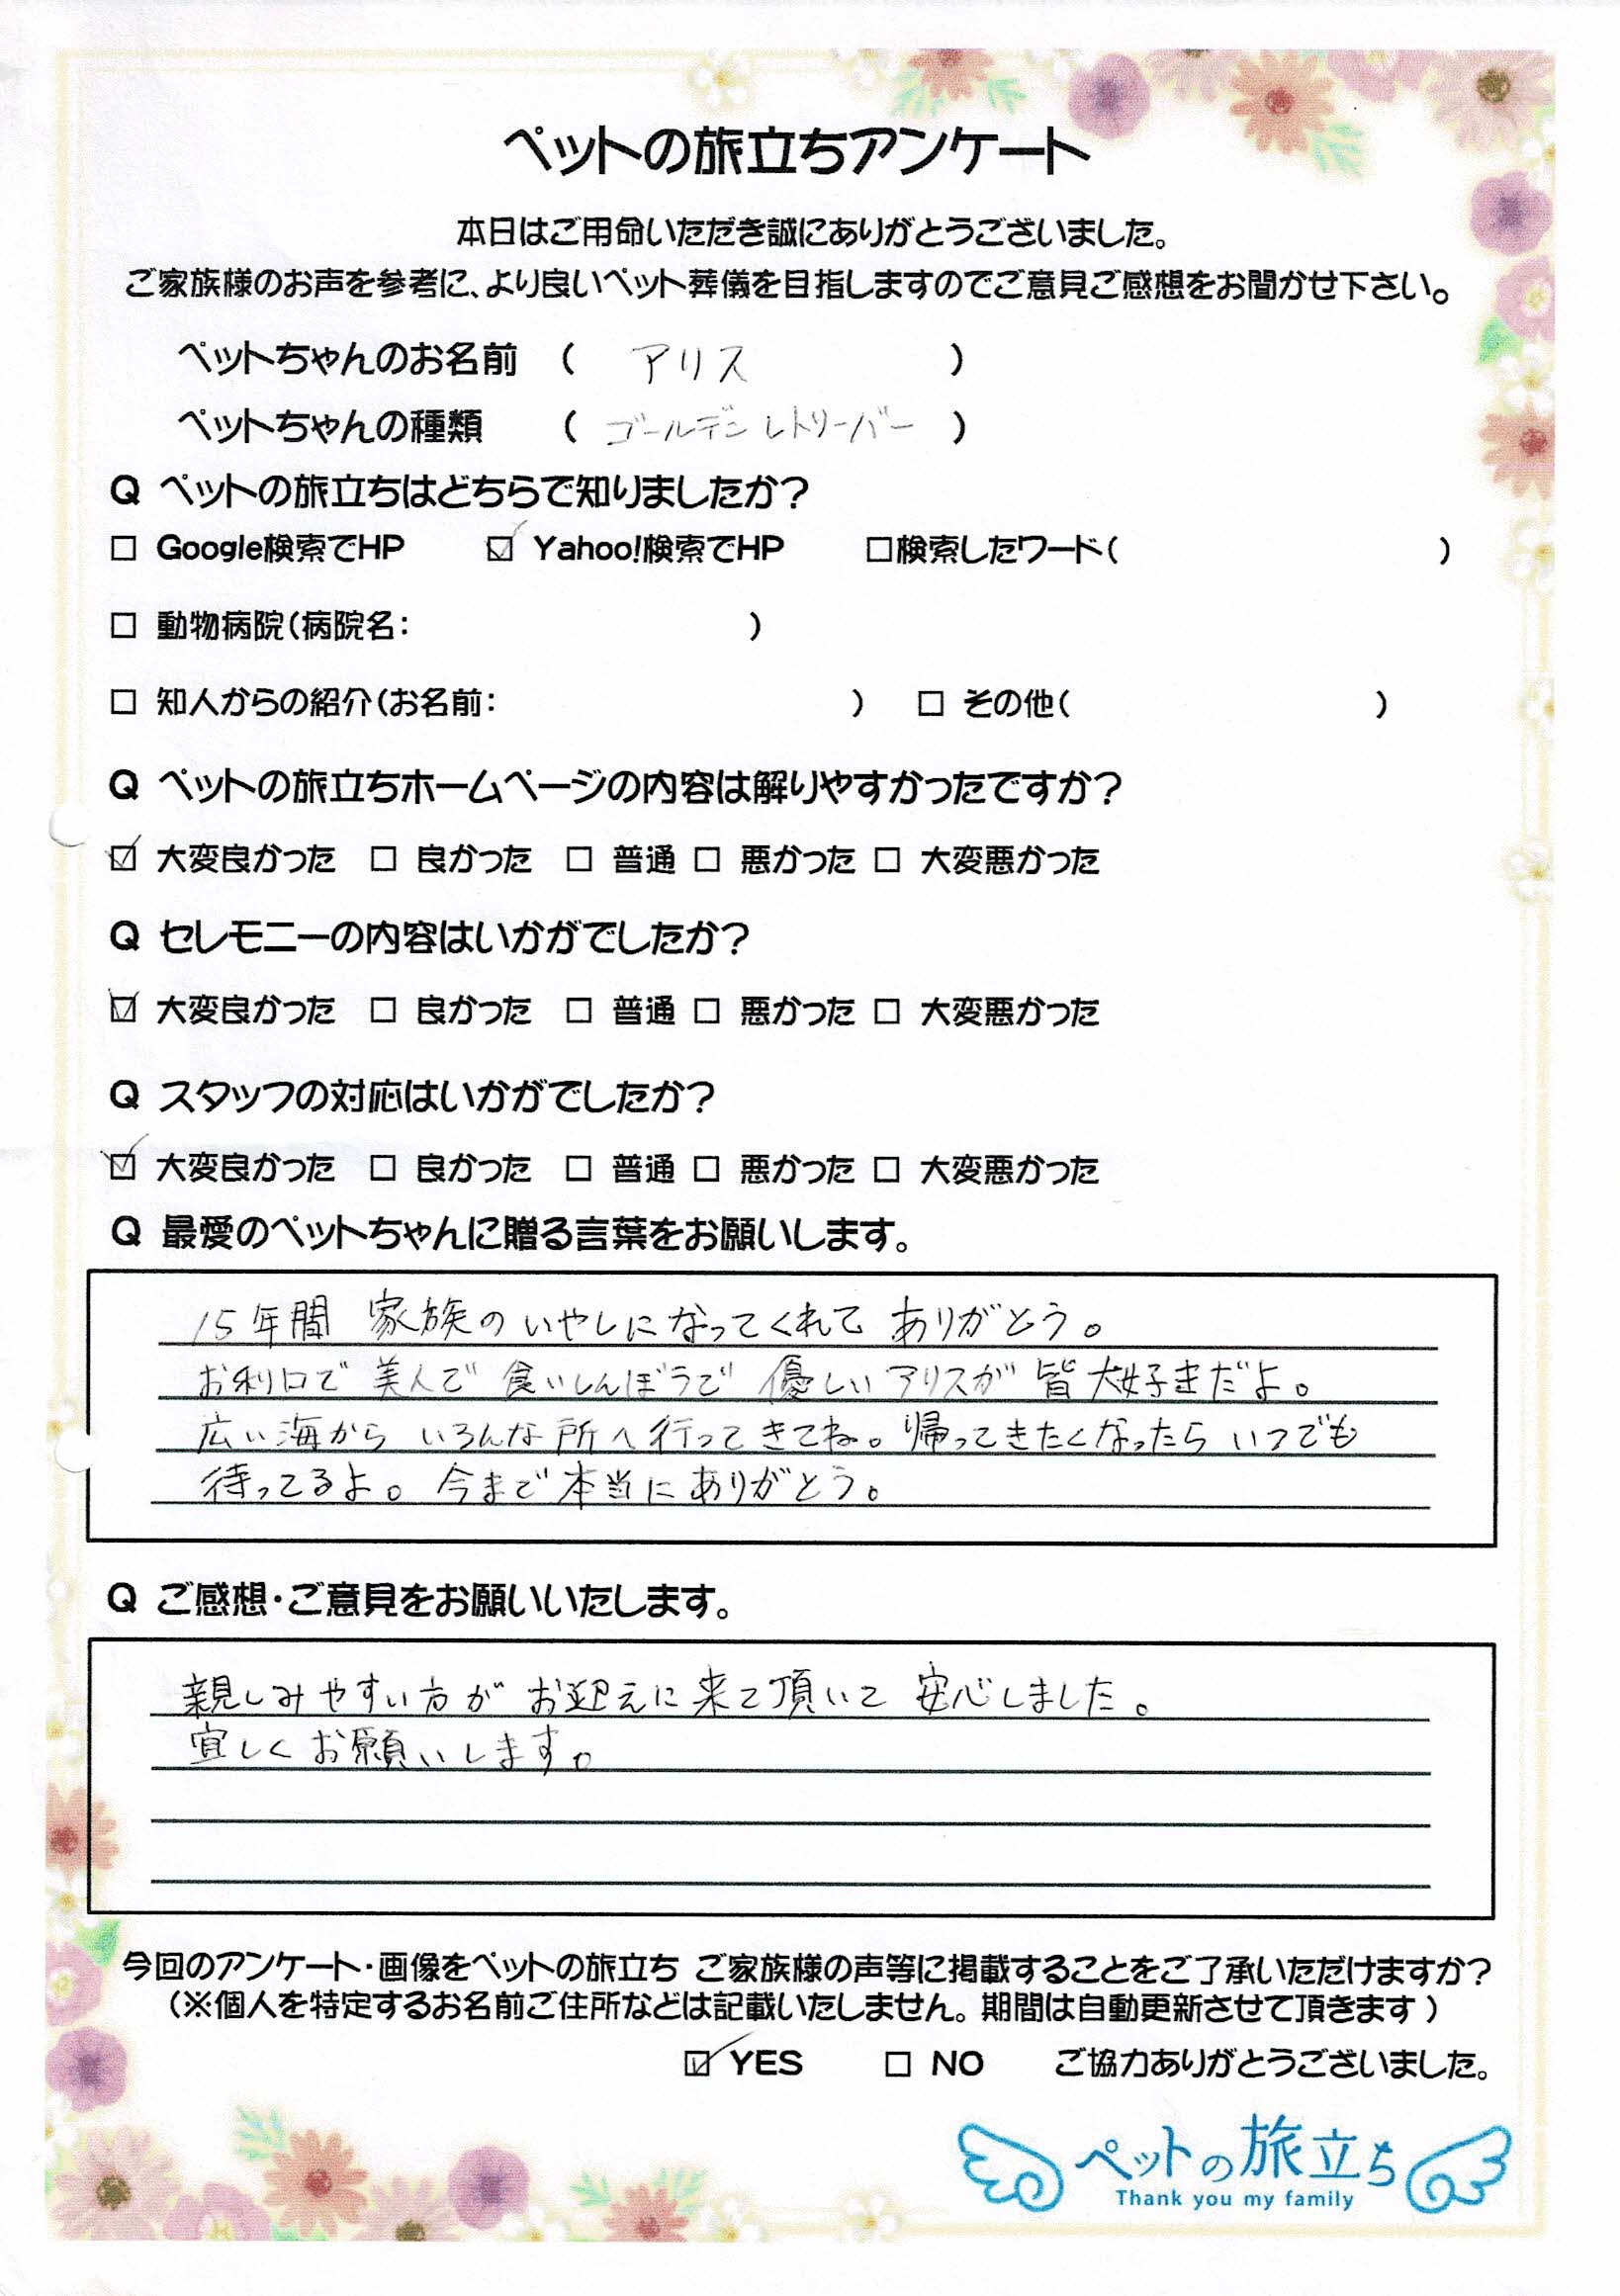 ペットの旅立ちアンケート
本日はご用命いただき誠にありがとうございました。
ご家族様のお声を参考に、より良いペット葬儀を目指しますのでご意見ご感想をお聞かせ下さい。
ペットちゃんのお名前 ( アリス )
ペットちゃんの種類 ( ゴールデンレトリーバー )
Q ペットの旅立ちはどちらで知りましたか?
☐ Google検索でHP ☑ Yahoo!検索でHP ☐検索したワード( )
☐ 動物病院(病院名: )
☐ 知人からの紹介(お名前: ) ☐ その他( )
Q ペットの旅立ちホームページの内容は解りやすかったですか?
☑ 大変良かった ☐ 良かった ☐ 普通 ☐ 悪かった ☐ 大変悪かった
Q セレモニーの内容はいかがでしたか?
☑ 大変良かった ☐ 良かった ☐ 普通 ☐ 悪かった ☐ 大変悪かった
Q スタッフの対応はいかがでしたか?
☑ 大変良かった ☐ 良かった ☐ 普通 ☐ 悪かった ☐ 大変悪かった
Q 最愛のペットちゃんに贈る言葉をお願いします。
15年間 家族のいやしになってくれて ありがとう。
お利口で 美人で 食いしんぼうで 優しい アリスが 皆大好きだよ。
広い海から いろんな所へ行ってきてね。帰ってきたくなったら いつでも
待ってるよ。今まで本当にありがとう。
Q ご感想・ご意見をお願いいたします。
親しみやすい方が お迎えに来て頂いて 安心しました。
宜しくお願いします。
今回のアンケート・画像をペットの旅立ち ご家族様の声等に掲載することをご了承いただけますか?
(※個人を特定するお名前ご住所などは記載いたしません。期間は自動更新させて頂きます)
☑ YES ☐ NO ご協力ありがとうございました。
ペットの旅立ち
Thank you my family